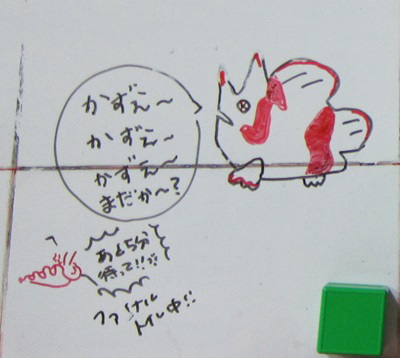 かずえ〜
かずえ〜
かずえ〜
まだか〜?
あと5分
待って!!
ファイナル
トイレ中!!